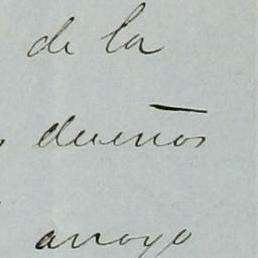 de la
dueños
arroyo